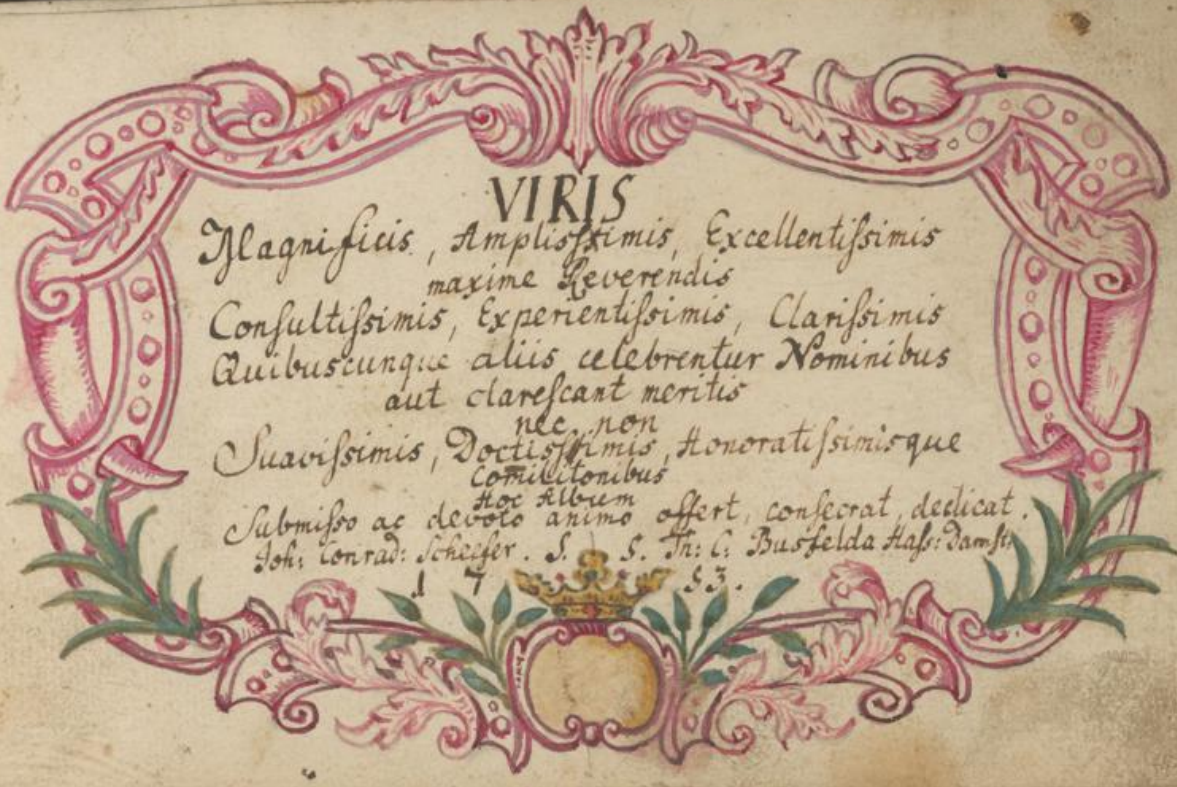 VIRIS
Magnificis, Amplissimis, Excellentissimis
maxime Reverendis
Consultissimis, Experientissimis, Clarissimis
Quibuscunque aliis celebrentur Nominibus
aut clarescant meritis
nec non
Suavissimis, Doctissimis, Honoratissimisque
Com̄ilitonibus
Hoc Album
Submisso ac devoto animo offert, consecrat, dedicat.
Joh: Conrad: Scheefer. S. S. Th: C: Busfelda Hass: Damst:
1 7 53.